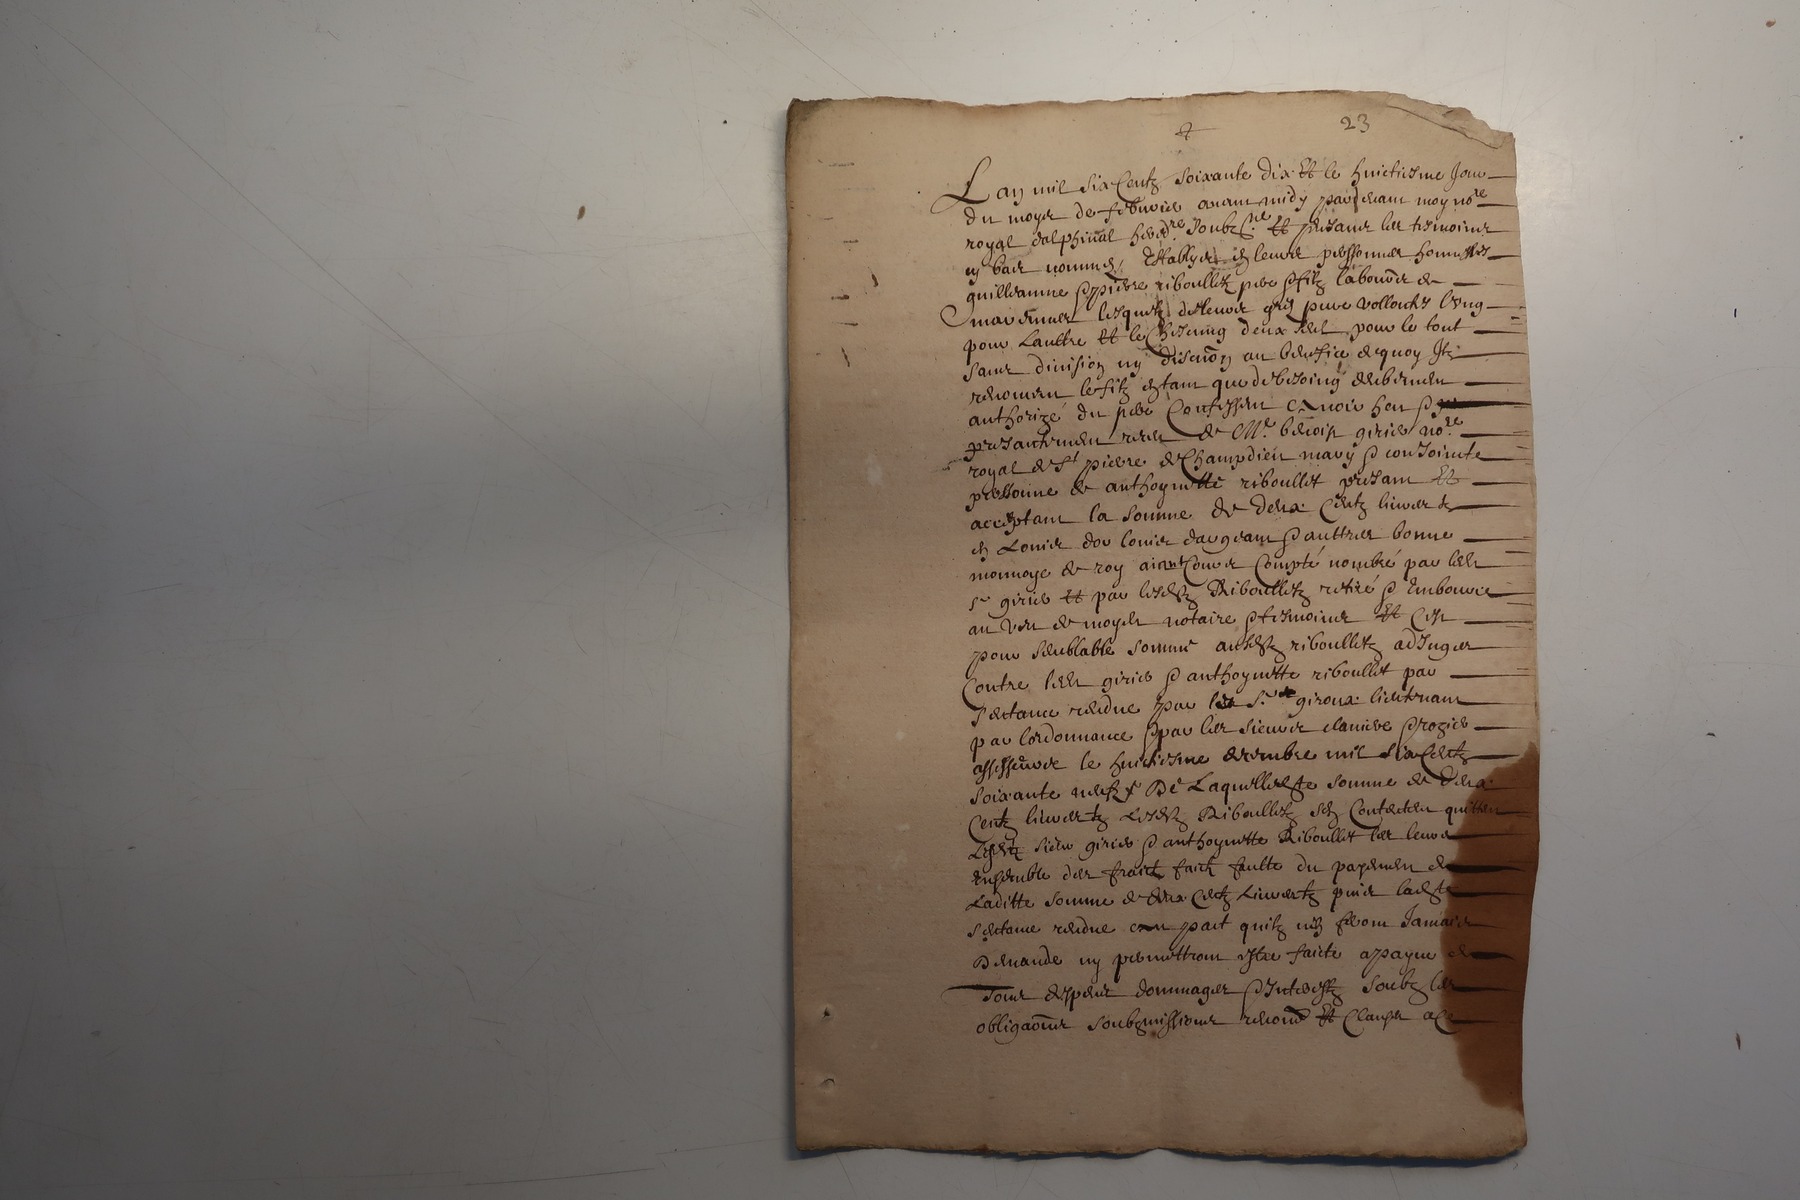 23
Lan mil six Centz soixante dix Et le huictiesme Jour
du moys de febvrier avant midy pardevant moy no.re
royal dalphinal hered.re soubz.ne Et presans les tesmoins
cy bas nommes, Establys en leurs personnes honnestes
guilleaume & pierre riboulletz pere & filz laboure de
lesquelz de leurs gres pure vollonte lung
pour Laultre Et le Chescung deux seul pour le tout
sans division ny discuon au benefice de quoy Ilz
renoncent le filz estant que de besoing deubemen
authorizé du pere Confessent avoir heu &
presantemen receu de M.e benoist girier no.re
royal de S.t pierre de Champdieu mary & conJointe
personne de anthoynette riboullet presant Et
acceptant la somme de deux Centz livres tz
en Louis dor louis dargeant & aultres bonne
monnoye de roy aiant Cours Compté nombré par led
s.r girier Et par lesdz Riboulletz retiré & Emboursé
au veu de moyd notaire & tesmoins Et Cest
pour semblable somme ausdz riboulletz adJuges
Contre led girier & anthoynette riboullet par
sentance rendue par le S.r giroux lieutenant
par lordonnance & par les sieurs & rozier
assesseurs le huictiesme decembre mil six Centz
soixante neufz De Laquelle dte somme de deux
Centz livres tz Lesdz Riboulletz sen Contenten quitten
Lesdz sieur girier & anthoynette Riboullet les leurs
ensemble des fraictz faictz faulte du payemen de
Laditte somme de deux Centz Livres tz puis ladte
sentance rendue quilz nen feront Jamais
Demande ny permettront estre faicte a payne de
tous despens dommages & Interestz soubz les
obligaons soubzmissions renons Et Clauses a Ce